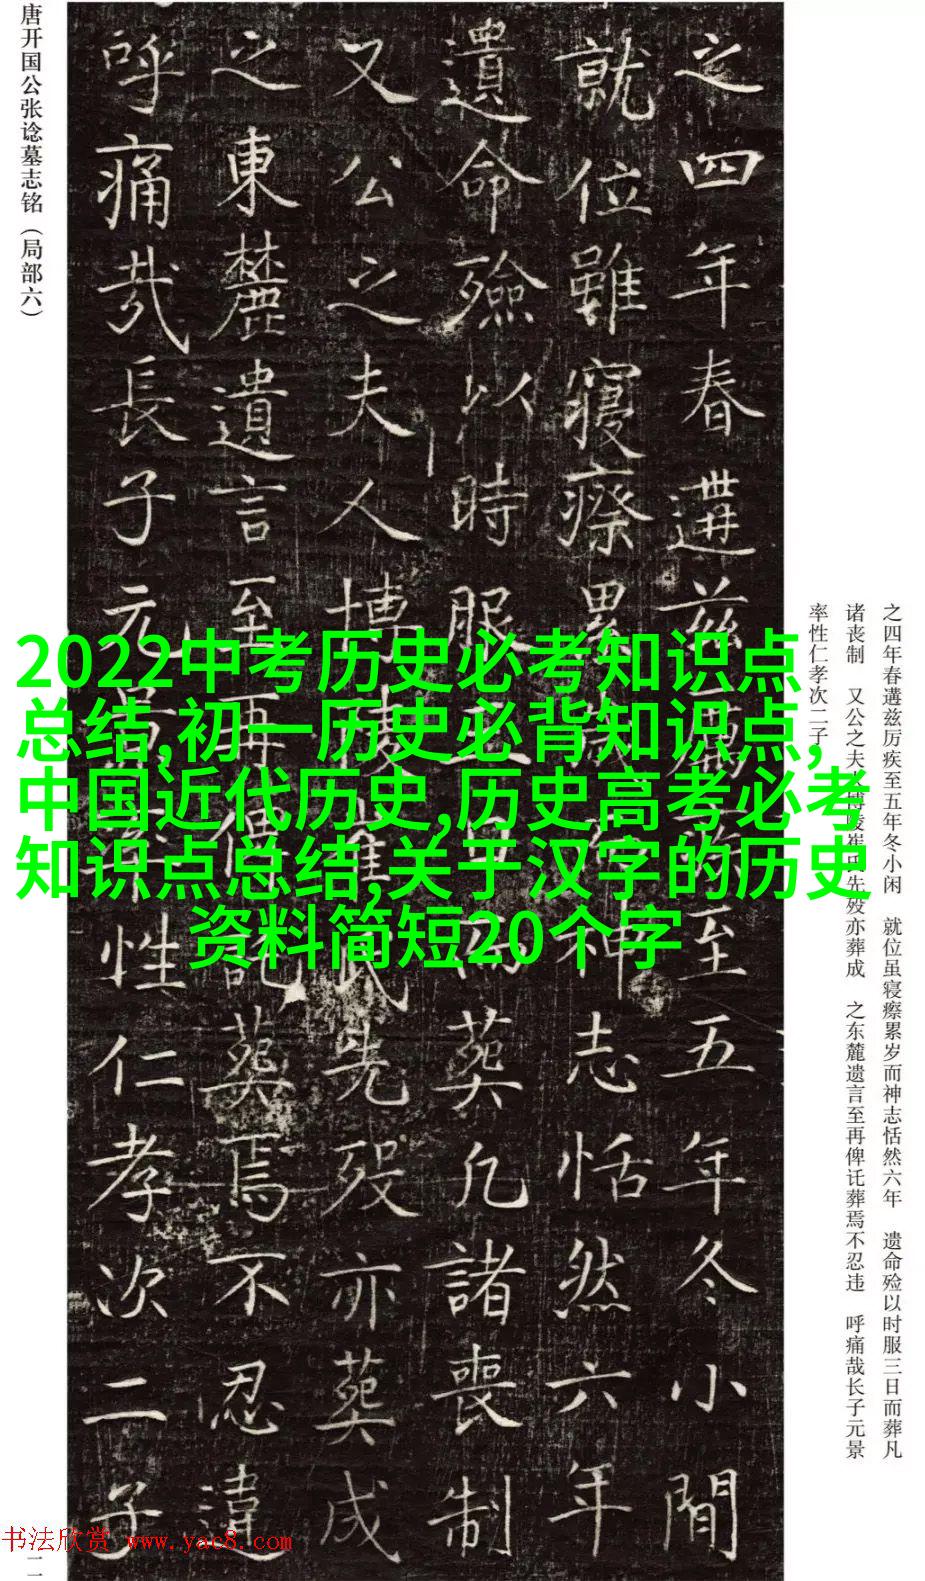 唐开国公张谂墓志铭（局部六）
之四年春遘茲厲疾至五年冬小閒
就位雖寢瘵累歲而神志恬然六年
遺命殮以時服三日而葬凡諸喪制
又公之夫人博陵崔氏先歿亦葬成
之東麓遺言至再俾託葬焉不忍違
呼痛哉長子元景率性仁孝次二子
之四年春遘兹厉疾至五年冬小闲　就位虽寝瘵累岁而神志恬然六年　遗命殓以时服三日而葬凡
诸丧制　又公之夫人博陵崔氏先殁亦葬成　之东麓遗言至再俾讬葬焉不忍违　呼痛哉长子元景
率性仁孝次二子
2022中考历史必考知识点
总结,初一历史必背知识点,
中国近代历史,历史高考必考
知识点总结,关于汉字的历史
资料简短20个字
书法欣赏 www.yac8.com